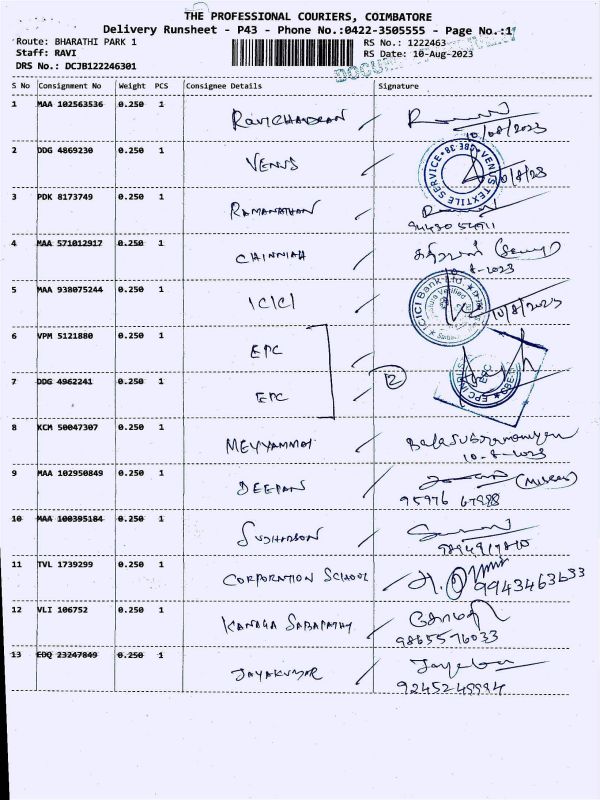 THE PROFESSIONAL COURIERS, COIMBATORE
Delivery Runsheet - P43 - Phone No.:0422-3505555 - Page No.:1
Route: BHARATHI PARK 1 RS No.: 1222463
Staff: RAVI RS Date: 10-Aug-2023
DRS No.: DCJB122246301
S No Consignment No Weight PCS Consignee Details Signature
1 MAA 102563536 0.250 1 RAVICHANDRAN
10/08/2023
2 DDG 4869230 0.250 1 VENUS
VENUS TEXTILE SERVICE * CBE-38
10/8/23
3 PDK 8173749 0.250 1 RAMANATHAN
4 MAA 571012917 0.250 1 CHINNIAH
10-8-2023
5 MAA 938075244 0.250 1 ICICI
ICICI Bank Ltd.
10/8/2023
6 VPM 5121880 0.250 1 EPC
7 DDG 4962241 0.250 1 EPC 2
EPC
8 KCM 50047307 0.250 1 MEYYAMMAI Balasubramaniyan
10-8-2023
9 MAA 102950849 0.250 1 DEEPAN
95976 67988
10 MAA 100395184 0.250 1 SUDHARSON
11 TVL 1739299 0.250 1 CORPORATION SCHOOL
9943463633
12 VLI 106752 0.250 1 KANAGA SABAPATHY
9865576033
13 EDQ 23247849 0.250 1 JAYAKUMAR
9245249994